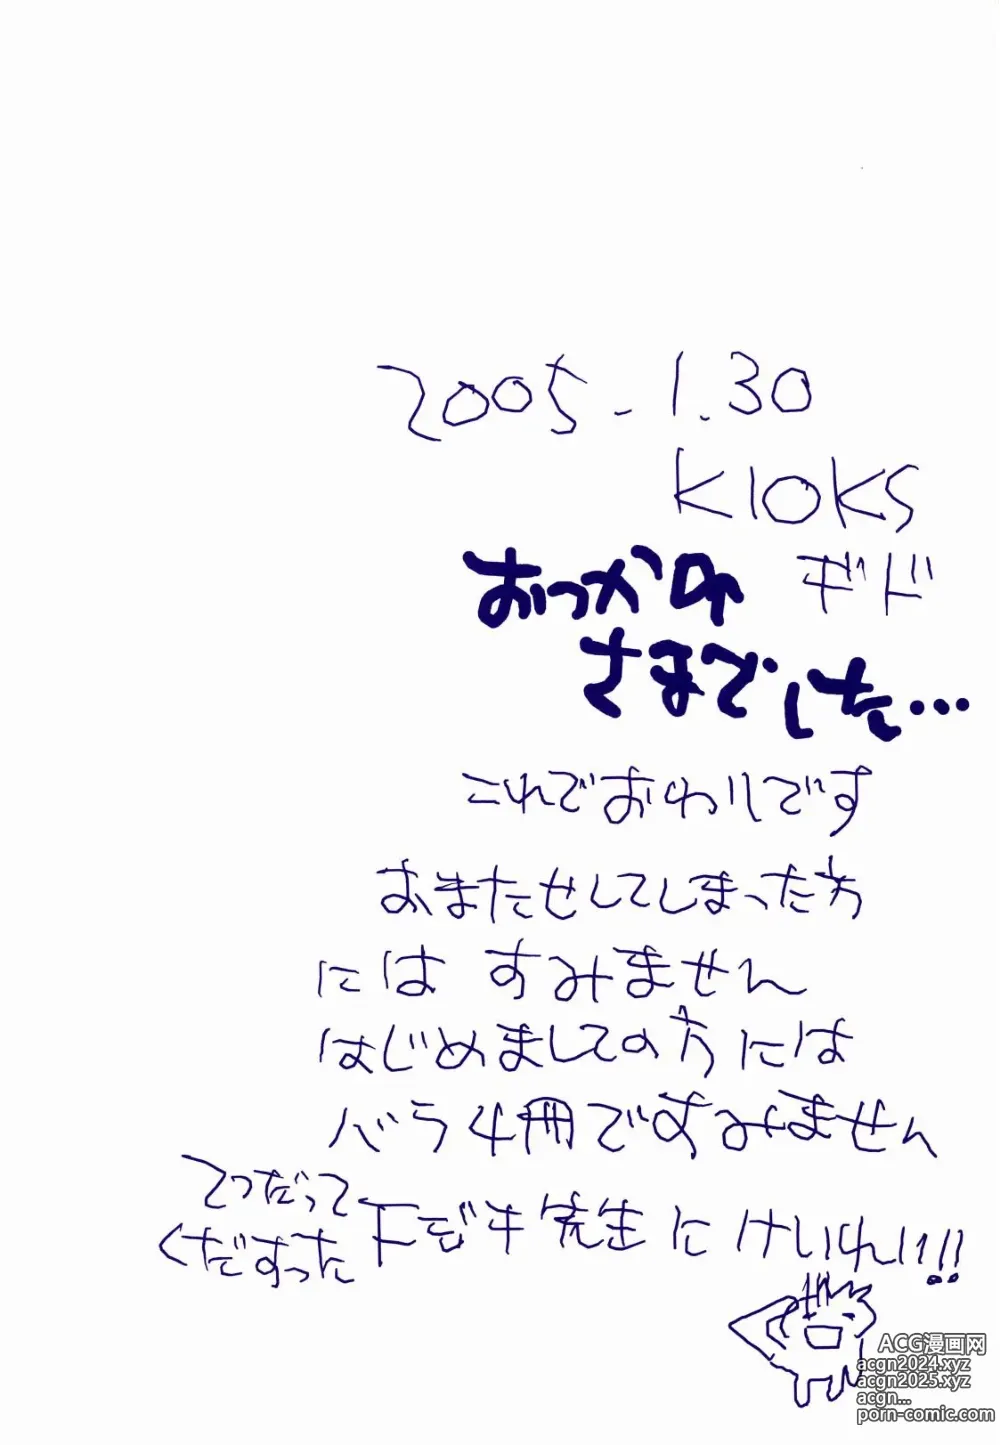 2005.1.30
KIOKS
ギド
おつかれ
さまでした…
これでおわりです
おまたせしてしまった方
には すみません
はじめましての方には
バラ4冊ですみません
てつだって
くだすった
下モジキ先生にけいれい!!
ACG漫画网
acgn2024.xyz
acgn2025.xyz
acgn...
porn-comic.com